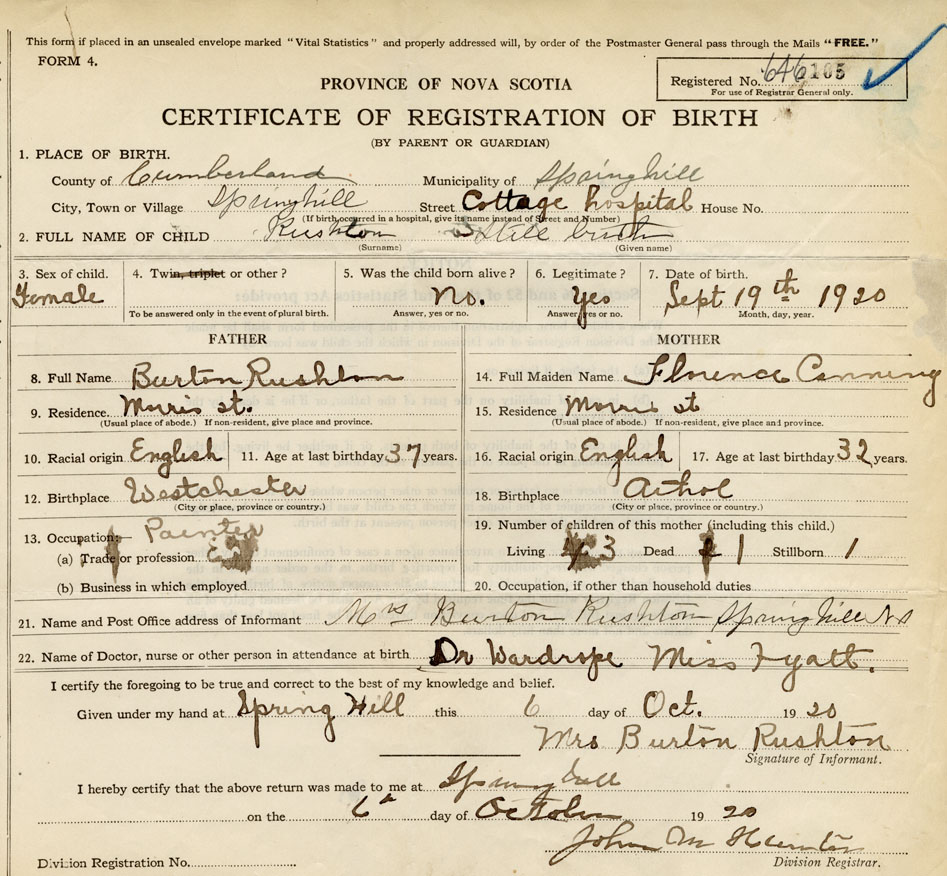 This form if placed in an unsealed envelope marked "Vital Statistics" and properly addressed will, by order of the Postmaster General pass through the Mails "FREE."
FORM 4.
Registered No. 646 2105
For use of Registrar General only.
PROVINCE OF NOVA SCOTIA
CERTIFICATE OF REGISTRATION OF BIRTH
(BY PARENT OR GUARDIAN)
1. PLACE OF BIRTH.
County of Cumberland Municipality of Springhill
City, Town or Village Springhill Street Cottage hospital House No.
(If birth occurred in a hospital, give its name instead of Street and Number)
2. FULL NAME OF CHILD Rushton Still birth
(Surname) (Given name)
3. Sex of child. 4. Twin, triplet or other? 5. Was the child born alive? 6. Legitimate? 7. Date of birth.
Female No. Yes Sept 19th 1920
To be answered only in the event of plural birth. Answer, yes or no. Answer, yes or no. Month, day, year.
FATHER MOTHER
8. Full Name Burton Rushton 14. Full Maiden Name Florence Canning
9. Residence. Morris st. 15. Residence Morris st
(Usual place of abode.) If non-resident, give place and province. (Usual place of abode.) If non-resident, give place and province.
10. Racial origin English 11. Age at last birthday 37 years. 16. Racial origin English 17. Age at last birthday 32 years.
12. Birthplace Westchester 18. Birthplace Athol
(City or place, province or country.) (City or place, province or country.)
13. Occupation:— Painter 19. Number of children of this mother (including this child.)
(a) Trade or profession Living 3 Dead 1 Stillborn 1
(b) Business in which employed 20. Occupation, if other than household duties
21. Name and Post Office address of Informant Mrs Burton Rushton Springhill N S
22. Name of Doctor, nurse or other person in attendance at birth Dr Wardrope Miss Fyatt.
I certify the foregoing to be true and correct to the best of my knowledge and belief.
Given under my hand at Spring Hill this 6 day of Oct. 1920
Mrs Burton Rushton
Signature of Informant.
I hereby certify that the above return was made to me at Springhill
on the 6th day of October 1920
John M Hunter
Division Registrar.
Division Registration No.